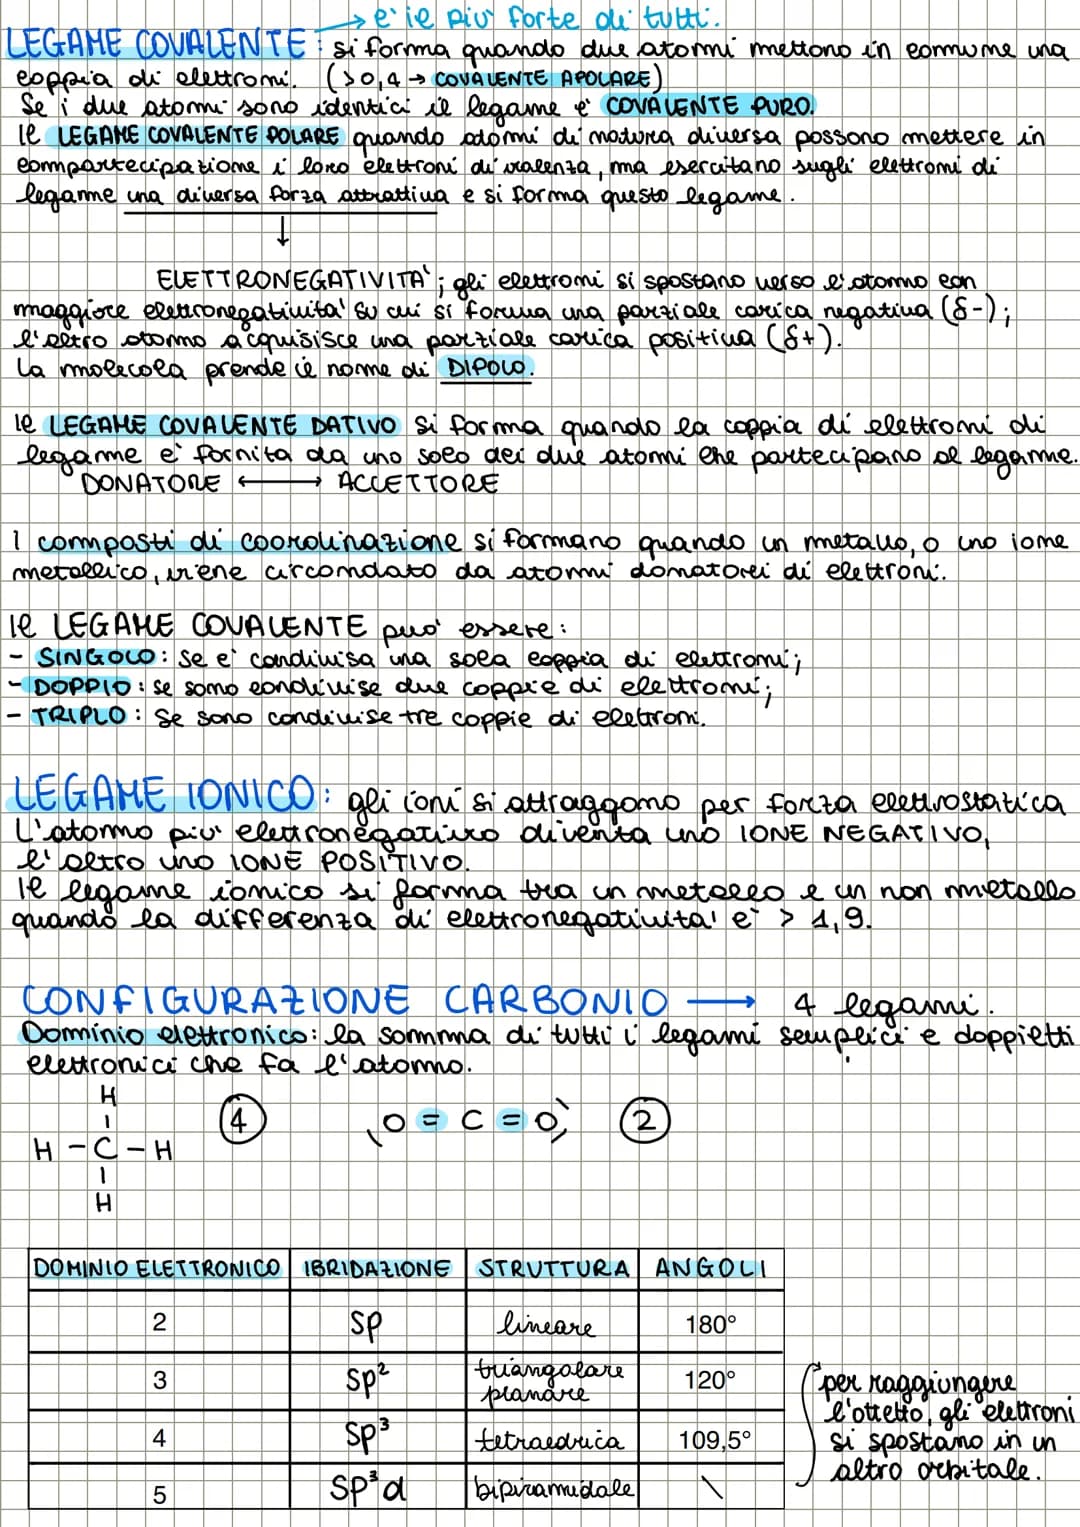 → e' il piu' forte di tutti.
LEGAME COVALENTE: si forma quando due atomi mettono in comune una
coppia di elettroni. (>0,4 → COVALENTE APOLARE)
Se i due atomi sono identici il legame e' COVALENTE PURO.
Il LEGAME COVALENTE POLARE quando atomi di natura diversa possono mettere in
compartecipazione i loro elettroni di valenza, ma esercitano sugli elettroni di
legame una diversa forza attrattiva e si forma questo legame.
↓
ELETTRONEGATIVITA'; gli elettroni si spostano verso l'atomo con
maggiore elettronegativita' su cui si forma una parziale carica negativa (δ-);
l'altro atomo acquisisce una parziale carica positiva (δ+).
La molecola prende il nome di DIPOLO.
Il LEGAME COVALENTE DATIVO si forma quando la coppia di elettroni di
legame e' fornita da uno solo dei due atomi che partecipano al legame.
DONATORE ⟷ ACCETTORE
I composti di coordinazione si formano quando un metallo, o uno ione
metallico, viene circondato da atomi donatori di elettroni.
Il LEGAME COVALENTE puo' essere:
- SINGOLO: se e' condivisa una sola coppia di elettroni;
- DOPPIO: se sono condivise due coppie di elettroni;
- TRIPLO: se sono condivise tre coppie di elettroni.
LEGAME IONICO: gli ioni si attraggono per forza elettrostatica
L'atomo piu' elettronegativo diventa uno IONE NEGATIVO,
l'altro uno IONE POSITIVO.
Il legame ionico si forma tra un metallo e un non metallo
quando la differenza di elettronegativita' e' > 1,9.
CONFIGURAZIONE CARBONIO → 4 legami.
Dominio elettronico: la somma di tutti i legami semplici e doppietti
elettronici che fa l'atomo.
H
|
H - C - H
|
H
4
O = C = O
2
DOMINIO ELETTRONICO IBRIDAZIONE STRUTTURA ANGOLI
2 sp lineare 180°
3 sp² triangolare planare 120°
4 sp³ tetraedrica 109,5°
5 sp³d bipiramidale \
per raggiungere
l'ottetto, gli elettroni
si spostano in un
altro orbitale.